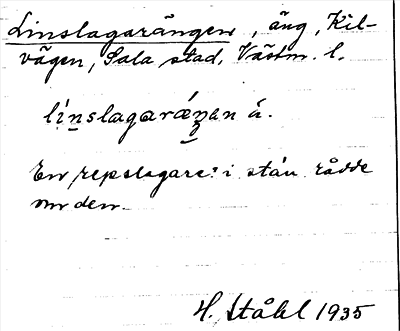 Linslagarängen, äng, Kil-
vägen, Sala stad, Västm. l.
linslagaræŋən ä.
En repslagare: i stán rådde
om den.
H. Ståhl 1935